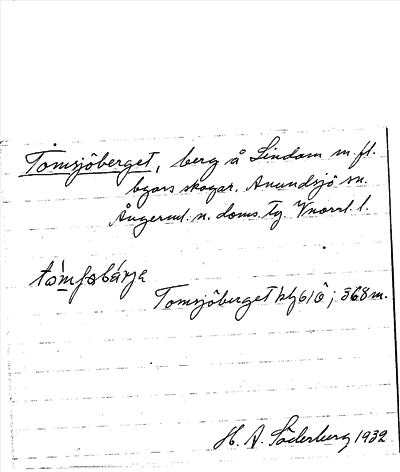 Tomsjöberget, berg å Lindom m. fl.
byars skogar. Anundsjö sn.
Ångerml. n. doms. Tg Vnorrl. l.
Tomsjöberget 368 m.
H. A. Söderberg 1932